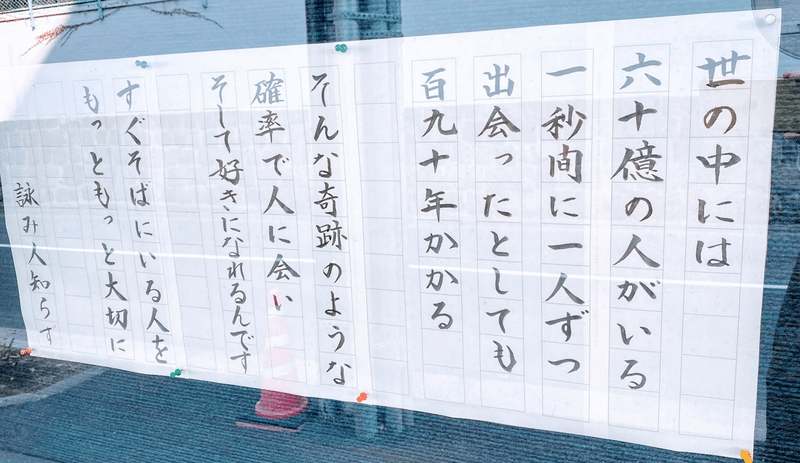 世の中には
六十億の人がいる
一秒間に一人ずつ
出会ったとしても
百九十年かかる
そんな奇跡のような
確率で人に会い
そして好きになれるんです
すぐそばにいる人を
もっともっと大切に
詠み人知らず